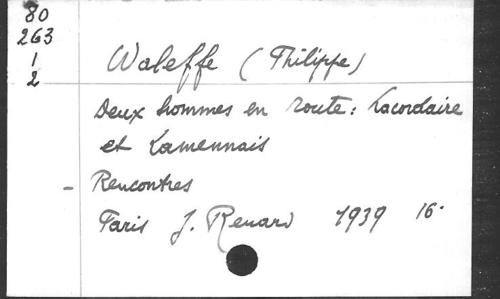 80
263
1
2
Waleffe (Philippe)
Deux hommes en route : Lacordaire
et Lamennais
- Rencontres
Paris J. Renard 1939 16.